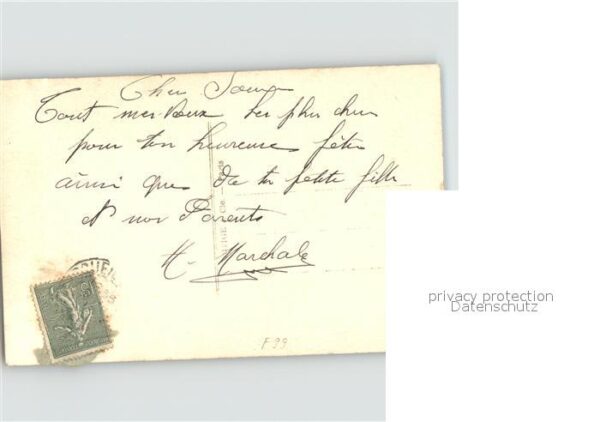 Cher Soeur
Tout mes Voeux les plus cher
pour ton heureuse fête
ainsi que de ta petite fille
et nos Parents
H. Marchale
F 99
privacy protection
Datenschutz